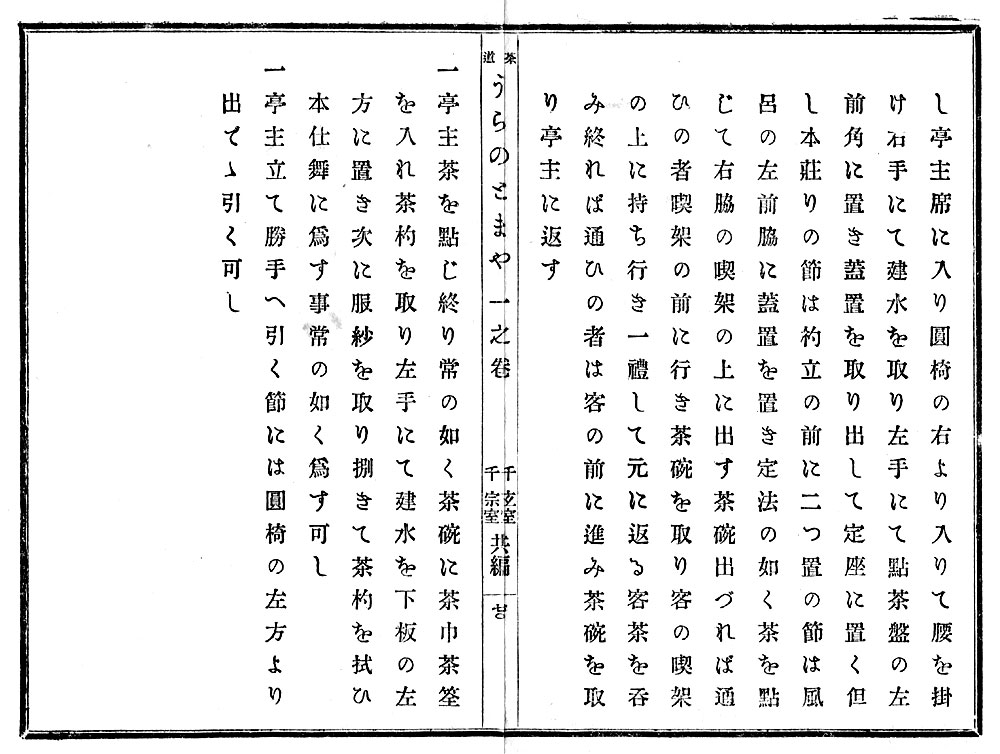 し亭主席に入り圓椅の右より入りて腰を掛
け右手にて建水を取り左手にて點茶盤の左
前角に置き蓋置を取り出して定座に置く但
し本莊りの節は杓立の前に二つ置の節は風
呂の左前脇に蓋置を置き定法の如く茶を點
じて右脇の喫架の上に出す茶碗出づれば通
ひの者喫架の前に行き茶碗を取り客の喫架
の上に持ち行き一禮して元に返る客茶を呑
み終れば通ひの者は客の前に進み茶碗を取
り亭主に返す
茶道
うらのとまや一之卷
千玄室
千宗室
共編
一亭主茶を點じ終り常の如く茶碗に茶巾茶筌
を入れ茶杓を取り左手にて建水を下板の左
方に置き次に服紗を取り捌きて茶杓を拭ひ
本仕舞に爲す事常の如く爲す可し
一亭主立て勝手へ引く節には圓椅の左方より
出でゝ引く可し